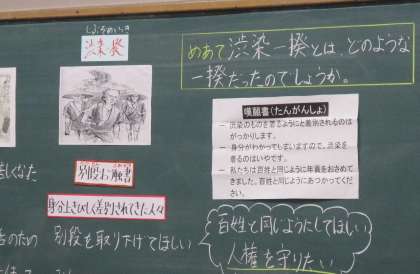 しぶぞめいっき
渋染一揆
めあて 渋染一揆とは、どのような
一揆だったのでしょうか。
嘆願書(たんがんしょ)
一 渋染のものを着るようにと差別されるのは
がっかりします。
一 身分がわかってしまいますので、渋染を
着るのはいやです。
一 私たちは百姓と同じように年貢をおさめて
きました。百姓と同じようにあつかってくだ
さい。
別段お触書
身分上きびしく差別されてきた人々
別段を取り下げてほしい
百姓と同じようにしてほしい
人権を守りたい
しくなた
舌のため